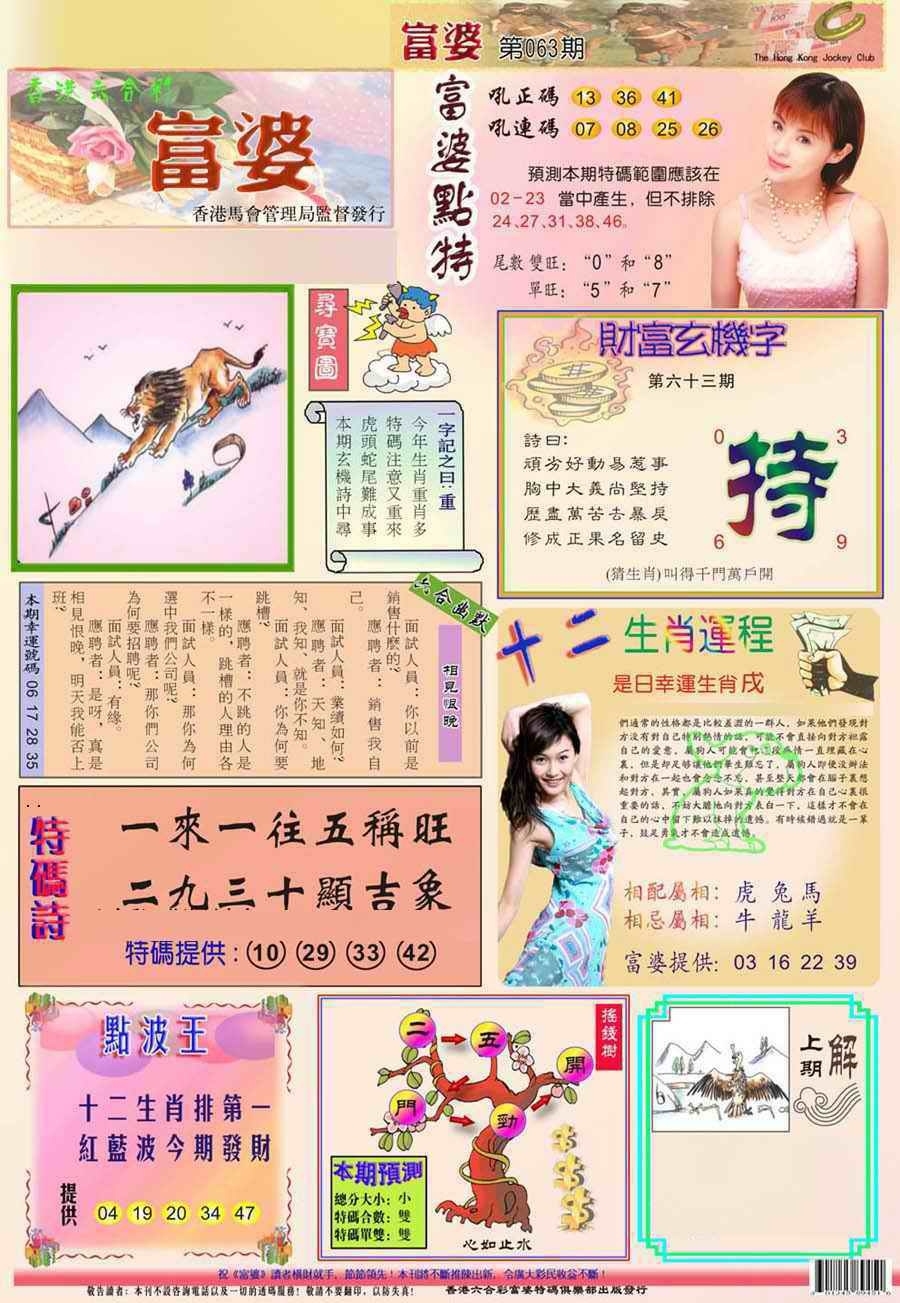 富婆 第063期
The Hong Kong Jockey Club
香港六合彩
富婆
香港馬會管理局監督發行
富婆點特
吼正碼 13 36 41
吼連碼 07 08 25 26
預測本期特碼範圍應該在
02-23 當中產生，但不排除
24、27、31、38、46。
尾數雙旺：“0”和“8”
單旺：“5”和“7”
尋寶圖
一字記之曰：重
今年生肖重肖多
特碼注意又重來
虎頭蛇尾難成事
本期玄機詩中尋
財富玄機字
第六十三期
詩曰：
頑劣好動易惹事
胸中大義尚堅持
歷盡萬苦去暴戾
修成正果名留史
0 3
持
6 9
(猜生肖)叫得千門萬戶開
六合幽默
相見恨晚
面試人員：你以前是
銷售什麼的？
應聘者：銷售我自
己。
面試人員：業績如何？
應聘者：天知、地
知、我知、就是你不知。
面試人員：你為何要
跳槽？
應聘者：不跳的人是
一樣的，跳槽的人理由各
不一樣。
面試人員：那你為何
選中我們公司呢？
應聘者：那你們公司
為何要招聘呢？
面試人員：有緣。
應聘者：是呀，真是
相見恨晚，明天我能否上
班？
本期幸運號碼 06 17 28 35
十二生肖運程
是日幸運生肖戌
們通常的性格都是比較羞澀的一群人，如果他們發現對
方沒有對自己特別熱情的話，可能不會直接向對方袒露
自己的愛意，屬狗人可能會他這段感情一直埋藏在心
裏，但是却足够讓他們畢生難忘了，屬狗人即便沒辦法
和對方在一起也會念念不忘，甚至整天都會在腦子裏想
起對方、其實，屬狗人如果真的覺得對方在自己心裏很
重要的話，不妨大膽地向對方表白一下，這樣才不會在
自己的心中留下難以抹掉的遺憾。有時候錯過就是一輩
子，鼓足勇氣才不會造成遺憾。
相配屬相：虎 兔 馬
相忌屬相：牛 龍 羊
富婆提供：03 16 22 39
特碼詩
一來一往五稱旺
二九三十顯吉象
特碼提供：10 29 33 42
點波王
十二生肖排第一
紅藍波今期發財
提供 04 19 20 34 47
搖錢樹
二 五
開
門 勁
本期預測
總分大小：小
特碼合數：雙
特碼單雙：雙
心如止水
上期解
祝《富婆》讀者橫財就手，節節領先！本刊將不斷推陳出新，令廣大彩民收益不斷！
敬告讀者：本刊不設咨詢電話以及一切的透碼服務！敬請不要翻印，以防失真！ 香港六合彩富婆特碼俱樂部出版發行